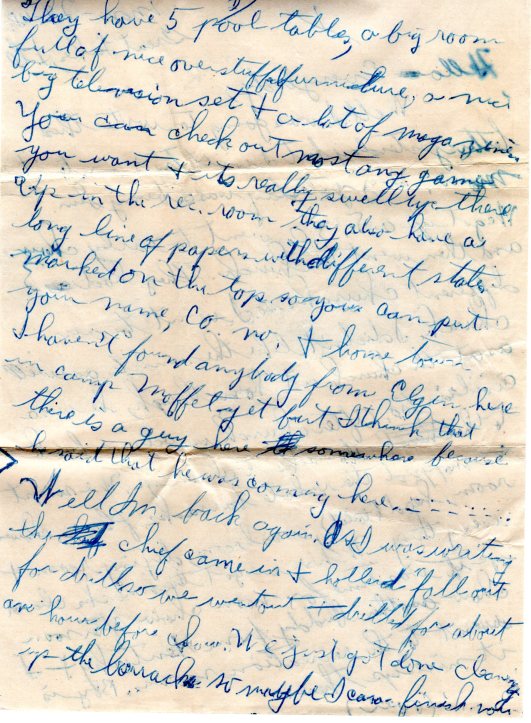 They have 5 pool tables, a big room
full of nice overstuffed furniture, a nice
big television set + a lot of magazines
You can check out most any game
you want + its really swell up there
Up in the rec. room they also have a
long line of papers with different states
marked on the top so you can put
your name, co. no. + home town.
I haven't found anybody from Elgin here
in camp Moffet yet but I think that
there is a guy here somewhere because
he said that he was coming here
Well Im back again. As I was writing
the chief came in + hollerd "fall out
for drill so we went out + drilled for about
an hour before chow. We just got done cleaning
up the barracks so maybe I can finish